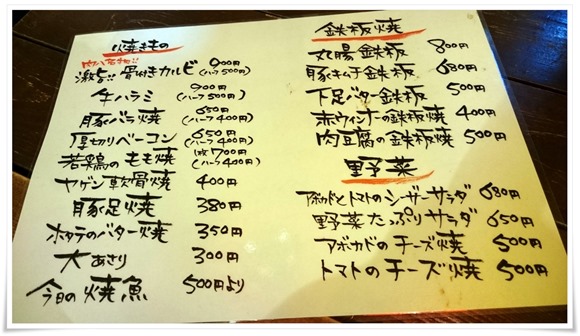 焼きもの
激旨!! 骨付きカルビ 900円 (ハーフ 500円)
牛ハラミ 900円 (ハーフ 500円)
豚バラ焼 650円 (ハーフ 400円)
厚切りベーコン 650円 (ハーフ 400円)
若鶏のもも焼 1枚 700円 (ハーフ 400円)
ヤゲン軟骨焼 400円
豚足焼 380円
ホタテのバター焼 350円
大あさり 300円
今日の焼魚 500円より
鉄板焼
丸腸鉄板 800円
豚キムチ鉄板 680円
下足バター鉄板 500円
赤ウィンナーの鉄板焼 400円
肉豆腐の鉄板焼 500円
野菜
アボカドとトマトのシーザーサラダ 680円
野菜たっぷりサラダ 650円
アボカドのチーズ焼 500円
トマトのチーズ焼 500円